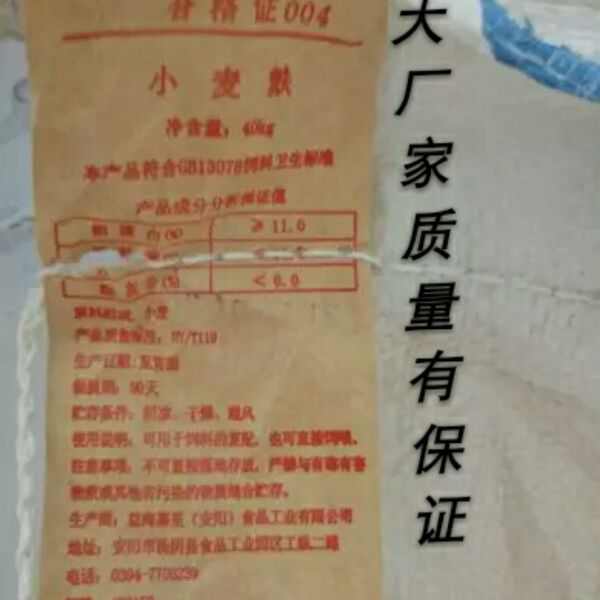 合格证004
小麦麸
净含量：40kg
本产品符合GB13078饲料卫生标准
产品成分分析保证值
粗蛋白(%) ≥11.0
原料组成：小麦
产品质量标准：NY/T119
生产日期：见背面
保质期：90天
贮存条件：阴凉、干燥、通风
使用说明：可用于饲料的复配，也可直接饲喂。
注意事项：不可直接落地存放，严禁与有毒有害
物质或其他有污染的物质混合贮存。
生产商：益海嘉里（安阳）食品工业有限公司
地址：安阳市汤阴县食品工业园区工纵二路
电话：
大厂家质量有保证